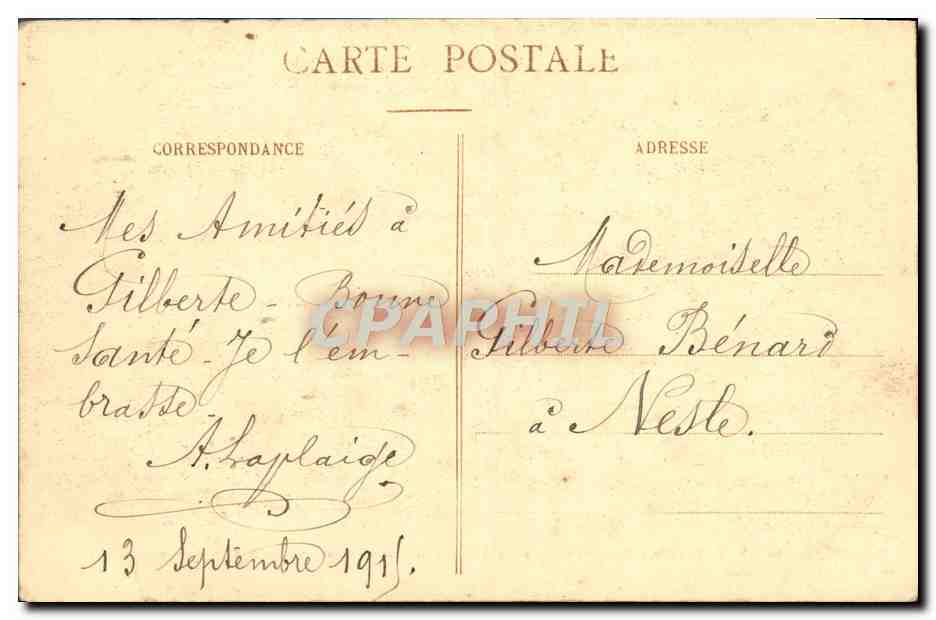 CARTE POSTALE
CORRESPONDANCE
Mes Amitiés à
Gilberte - Bonne
Santé - Je l'em-
brasse.
A. Laplaige
13 Septembre 1915.
ADRESSE
Mademoiselle
Gilberte Bénard
à Nesle.
CPAPHIL